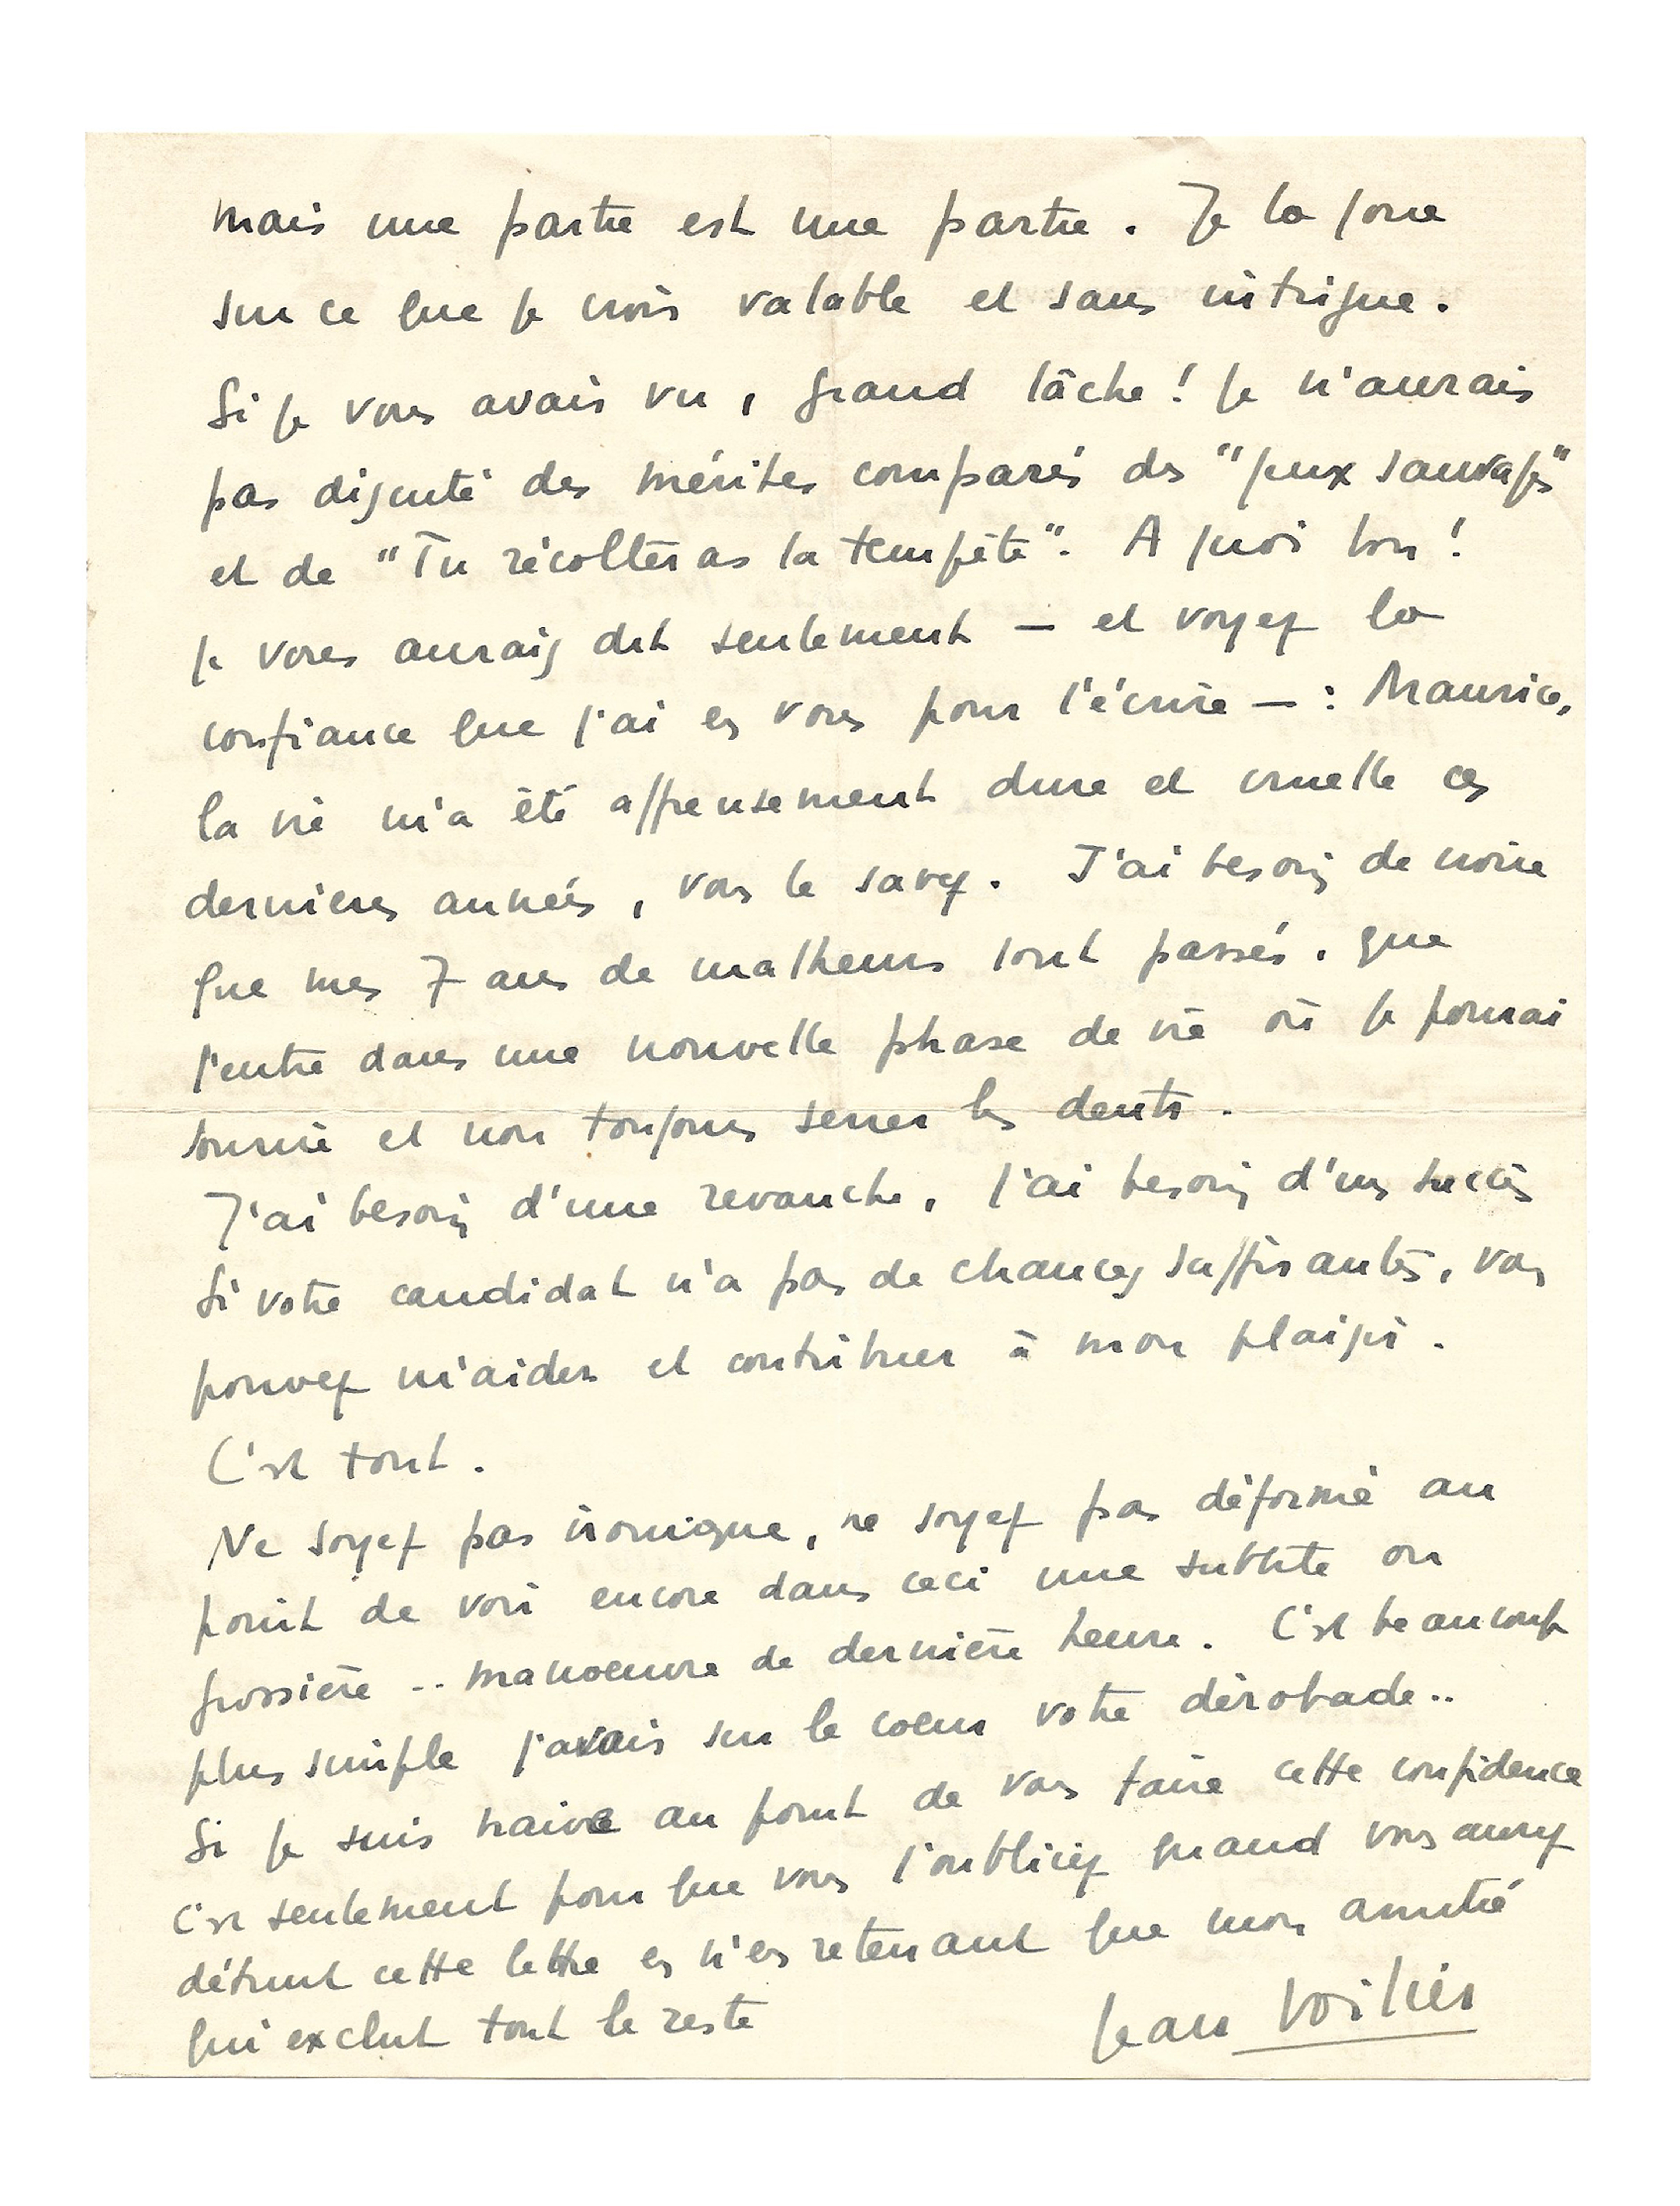 mais une partie est une partie. Je la joue
sur ce que je crois valable et sans intrigue.
Si je vous avais vu, grand lâche ! je n'aurais
pas discuté des mérites comparés des "jeux sauvages"
et de "Tu récolteras la tempête". A quoi bon !
je vous aurais dit seulement — et voyez la
confiance que j'ai en vous pour l'écrire — : Maurice,
la vie m'a été affreusement dure et cruelle ces
dernieres années, vous le savez. J'ai besoin de croire
que mes 7 ans de malheurs sont passés. que
j'entre dans une nouvelle phase de vie où je pourrai
sourire et non toujours serrer les dents.
J'ai besoin d'une revanche, j'ai besoin d'un succès
Si votre candidat n'a pas de chances suffisantes, vous
pouvez m'aider et contribuer à mon plaisir.
C'est tout.
Ne soyez pas ironique, ne soyez pas déformé au
point de voir encore dans ceci une subtile ou
grossière .. manoeuvre de dernière heure. C'est beaucoup
plus simple j'avais sur le coeur votre dérobade..
Si je suis naive au point de vous faire cette confidence
c'est seulement pour que vous l'oubliiez quand vous aurez
détruit cette lettre en n'en retenant que mon amitié
qui exclut tout le reste
Jean Voilier